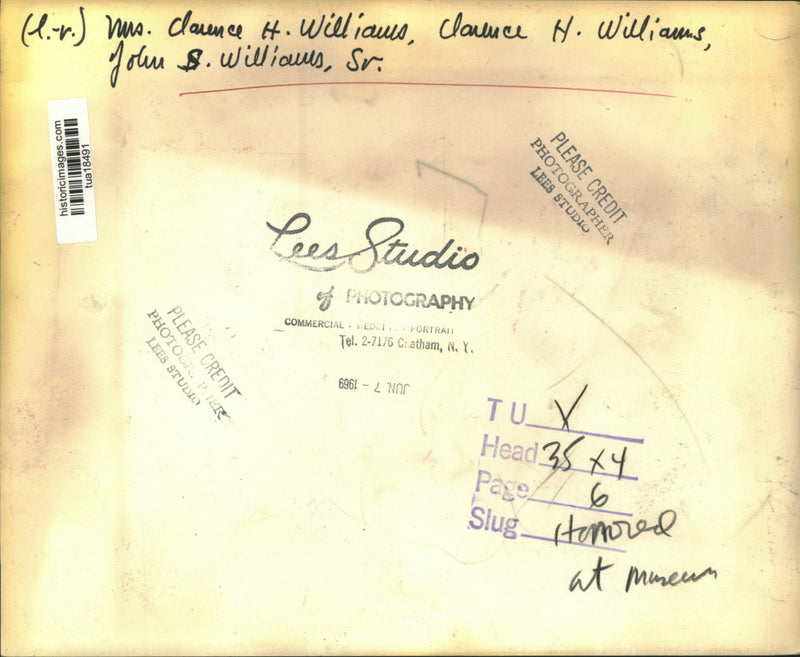 (l.-r.) Mrs. Clarence H. Williams, Clarence H. Williams,
John S. Williams, Sr.
historicimages.com
tua18491
PLEASE CREDIT
PHOTOGRAPHER
LEES STUDIO
Lees Studio
of PHOTOGRAPHY
COMMERCIAL - - PORTRAIT
Tel. 2-7176 Chatham, N. Y.
PLEASE CREDIT
PHOTOGRAPHER
LEES STUDIO
JUN 7 - 1969
T U
Head 35 x 4
Page 6
Slug Honored
at museum